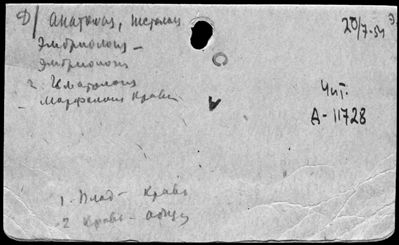 Д/ Анатомия, гистология
20/7-54
Эмбриология –
Эмбриология
2. Гематология
Морфология крови
Чит.
А-11728
1. Плод – кровь
2 Кровь –